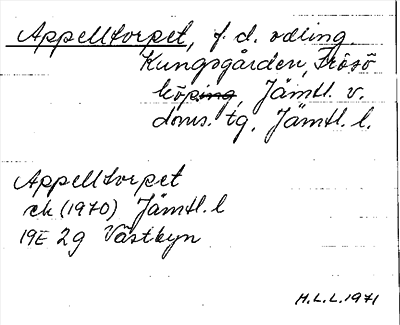 Appelltorpet, f. d. odling.
Kungsgården, Frösö
köping, Jämtl. v.
doms. tg, Jämtl. l.
Appelltorpet
ek (1970) Jämtl. l
19E 2g Västbyn
H.L.L. 1971